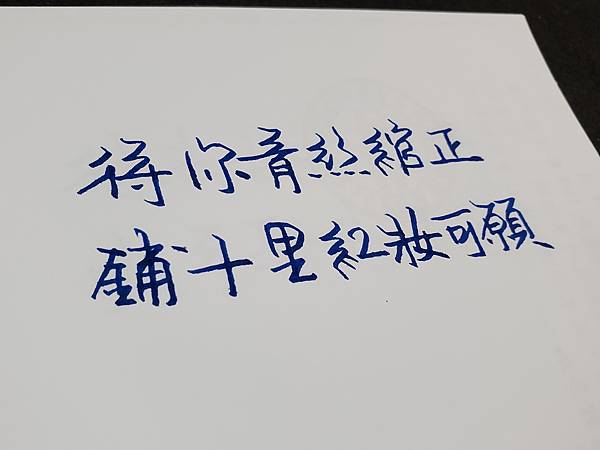 待你青絲綰正
鋪十里紅妝可願